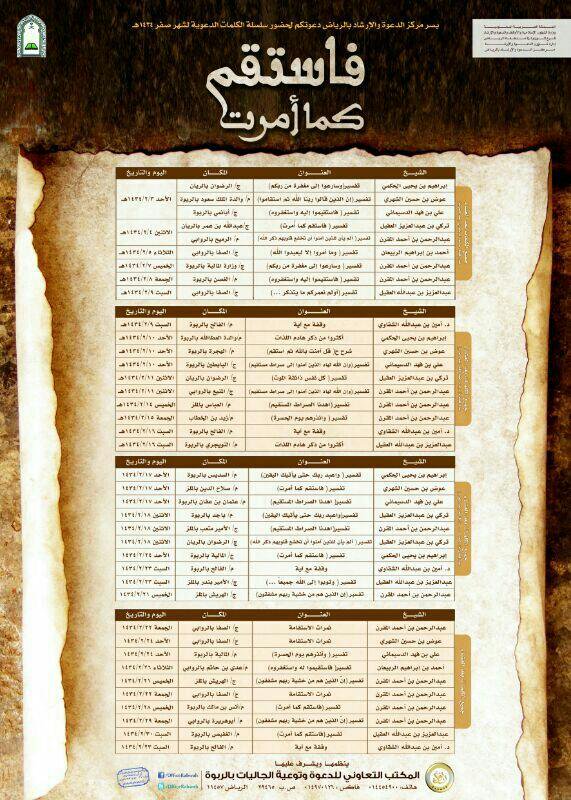 يسر مركز الدعوة والإرشاد بالرياض دعوتكم لحضور سلسلة الكلمات الدعوية لشهر صفر ١٤٣٤هـ
فاستقم
كما أمرت
الشيخ العنوان المكان اليوم والتاريخ
إبراهيم بن يحيى الحكمي تفسير(وسارعوا إلى مغفرة من ربكم) ج/ الرضوان بالريان
عوض بن حسين الشهري تفسير (إن الذين قالوا ربنا الله ثم استقاموا) م/ والدة الملك سعود بالربوة الأحد ١٤٣٤/٢/٣هـ
علي بن فهد الدسيماني تفسير (فاستقيموا إليه واستغفروه) بالربوة
تركي بن عبدالعزيز العقيل تفسير ( فاستقم كما أمرت) ج/عبدالله بن عمر بالريان الاثنين ١٤٣٤/٢/٤هـ
عبدالرحمن بن أحمد المقرن تفسير ( ألم يأن للذين آمنوا أن تخشع قلوبهم ذكر الله) بالروابي
أحمد بن إبراهيم الربيعان تفسير ( وما أمروا إلا ليعبدوا الله) ج/ الصفا بالروابي الثلاثاء ١٤٣٤/٢/٥هـ
عبدالرحمن بن أحمد المقرن تفسير ( وسارعوا إلى مغفرة من ربكم) ج/ وزارة المالية بالربوة الخميس ١٤٣٤/٢/٧هـ
عبدالرحمن بن أحمد المقرن تفسير (فاستقيموا إليه واستغفروه) بالربوة الجمعة ١٤٣٤/٢/٨هـ
عبدالعزيز بن عبدالله العقيل تفسير (أولم نعمركم ما يتذكر ...) ج/ الصفا بالروابي السبت ١٤٣٤/٢/٩هـ
الشيخ العنوان المكان اليوم والتاريخ
د. أمين بن عبدالله الشقاوي وقفة مع آية م/ الفالح بالربوة السبت ١٤٣٤/٢/٩هـ
إبراهيم بن يحيى الحكمي أكثروا من ذكر هادم اللذات بالربوة الأحد ١٤٣٤/٢/١٠هـ
عوض بن حسين الشهري شرح ح( قل آمنت بالله ثم استقم) م/ الهجرة بالربوة الأحد ١٤٣٤/٢/١٠هـ
علي بن فهد الدسيماني تفسير (وإن الله لهاد الذين آمنوا إلى صراط مستقيم) ج/ البابطين بالربوة الأحد ١٤٣٤/٢/١٠هـ
تركي بن عبدالعزيز العقيل تفسير ( كل نفس ذائقة الموت) ج/ الرضوان بالريان الاثنين ١٤٣٤/٢/١١هـ
عبدالرحمن بن أحمد المقرن تفسير (وإن الله لهاد الذين آمنوا إلى صراط مستقيم) بالروابي الاثنين ١٤٣٤/٢/١١هـ
عبدالرحمن بن أحمد المقرن تفسير (اهدنا الصراط المستقيم) م/ العباس بالملز الخميس ١٤٣٤/٢/١٤هـ
عبدالرحمن بن أحمد المقرن تفسير ( وأنذرهم يوم الحسرة) م/زيد بن الخطاب الجمعة ١٤٣٤/٢/١٥هـ
د. أمين بن عبدالله الشقاوي وقفة مع آية م/ الفالح بالربوة السبت ١٤٣٤/٢/١٦هـ
عبدالعزيز بن عبدالله العقيل أكثروا من ذكر هادم اللذات م/ التويجري بالربوة السبت ١٤٣٤/٢/١٦هـ
الشيخ العنوان المكان اليوم والتاريخ
إبراهيم بن يحيى الحكمي تفسير ( واعبد ربك حتى يأتيك اليقين) م/ السديس بالربوة الأحد ١٤٣٤/٢/١٧
عوض بن حسين الشهري تفسير (فاستقم كما أمرت) م/ صلاح الدين بالملز الأحد ١٤٣٤/٢/١٧
علي بن فهد الدسيماني تفسير( اهدنا الصراط المستقيم) م/ عثمان بن عفان بالربوة الأحد ١٤٣٤/٢/١٧
تركي بن عبدالعزيز العقيل تفسير(واعبد ربك حتى يأتيك اليقين) بالربوة الاثنين ١٤٣٤/٢/١٨
عبدالرحمن بن أحمد المقرن تفسير (اهدنا الصراط المستقيم) ج/ الأمير متعب بالملز الاثنين ١٤٣٤/٢/١٨
تركي بن عبدالعزيز العقيل تفسير ( ألم يأن للذين آمنوا أن تخشع قلوبهم ذكر الله) ج/ الرضوان بالريان الاثنين ١٤٣٤/٢/١٨
إبراهيم بن يحيى الحكمي تفسير ( فاستقم كما أمرت) ج/ المالية بالربوة الأحد ١٤٣٤/٢/٢٤
د. أمين بن عبدالله الشقاوي وقفة مع آية م/ الفالح بالربوة السبت ١٤٣٤/٢/٢٣
عبدالعزيز بن عبدالله العقيل تفسير ( وتوبوا إلى الله جميعا ...) ج/ الأمير بندر بالملز السبت ١٤٣٤/٢/٢٣
عبدالرحمن بن أحمد المقرن تفسير (إن الذين هم من خشية ربهم مشفقون) ج/ الهريش بالملز الخميس ١٤٣٤/٢/٢١
الشيخ العنوان المكان اليوم والتاريخ
عبدالرحمن بن أحمد المقرن ثمرات الاستقامة ج/ الصفا بالروابي الجمعة ١٤٣٤/٢/٢٢
عوض بن حسين الشهري ثمرات الاستقامة ج/ الصفا بالروابي الأحد ١٤٣٤/٢/٢٤
علي بن فهد الدسيماني تفسير ( وأنذرهم يوم الحسرة) م/ المالية بالربوة الأحد ١٤٣٤/٢/٢٤
أحمد بن إبراهيم الربيعان تفسير (فاستقيموا له واستغفروه) م/عدي بن حاتم بالروابي الثلاثاء ١٤٣٤/٢/٢٦
عبدالرحمن بن أحمد المقرن تفسير (إن الذين هم من خشية ربهم مشفقون) ج/ الهريش بالملز الخميس ١٤٣٤/٢/٢١
عبدالرحمن بن أحمد المقرن ثمرات الاستقامة ج/ الصفا بالروابي الجمعة ١٤٣٤/٢/٢٢
عبدالرحمن بن أحمد المقرن تفسير ( فاستقم كما أمرت) م/أنس بن مالك بالربوة الخميس ١٤٣٤/٢/٢٨
عبدالرحمن بن أحمد المقرن تفسير (إن الذين هم من خشية ربهم مشفقون) م/ أبوهريرة بالروابي الجمعة ١٤٣٤/٢/٢٩
عبدالعزيز بن عبدالله العقيل تفسير (فاستقم كما أمرت) بالربوة السبت ١٤٣٤/٢/٣٠
د. أمين بن عبدالله الشقاوي وقفة مع آية م/ الفالح بالربوة السبت ١٤٣٤/٢/٢٣
ينظمها ويشرف عليها
المكتب التعاوني للدعوة وتوعية الجاليات بالربوة
هاتف: ٠١٤٤٥٤٩٠٠ فاكس: ٠١٤٩٧٠١٢٦ ص.ب ٢٩٤٦٥ الرياض ١١٤٥٧
/OfficeRabwah
/OfficeRabwah